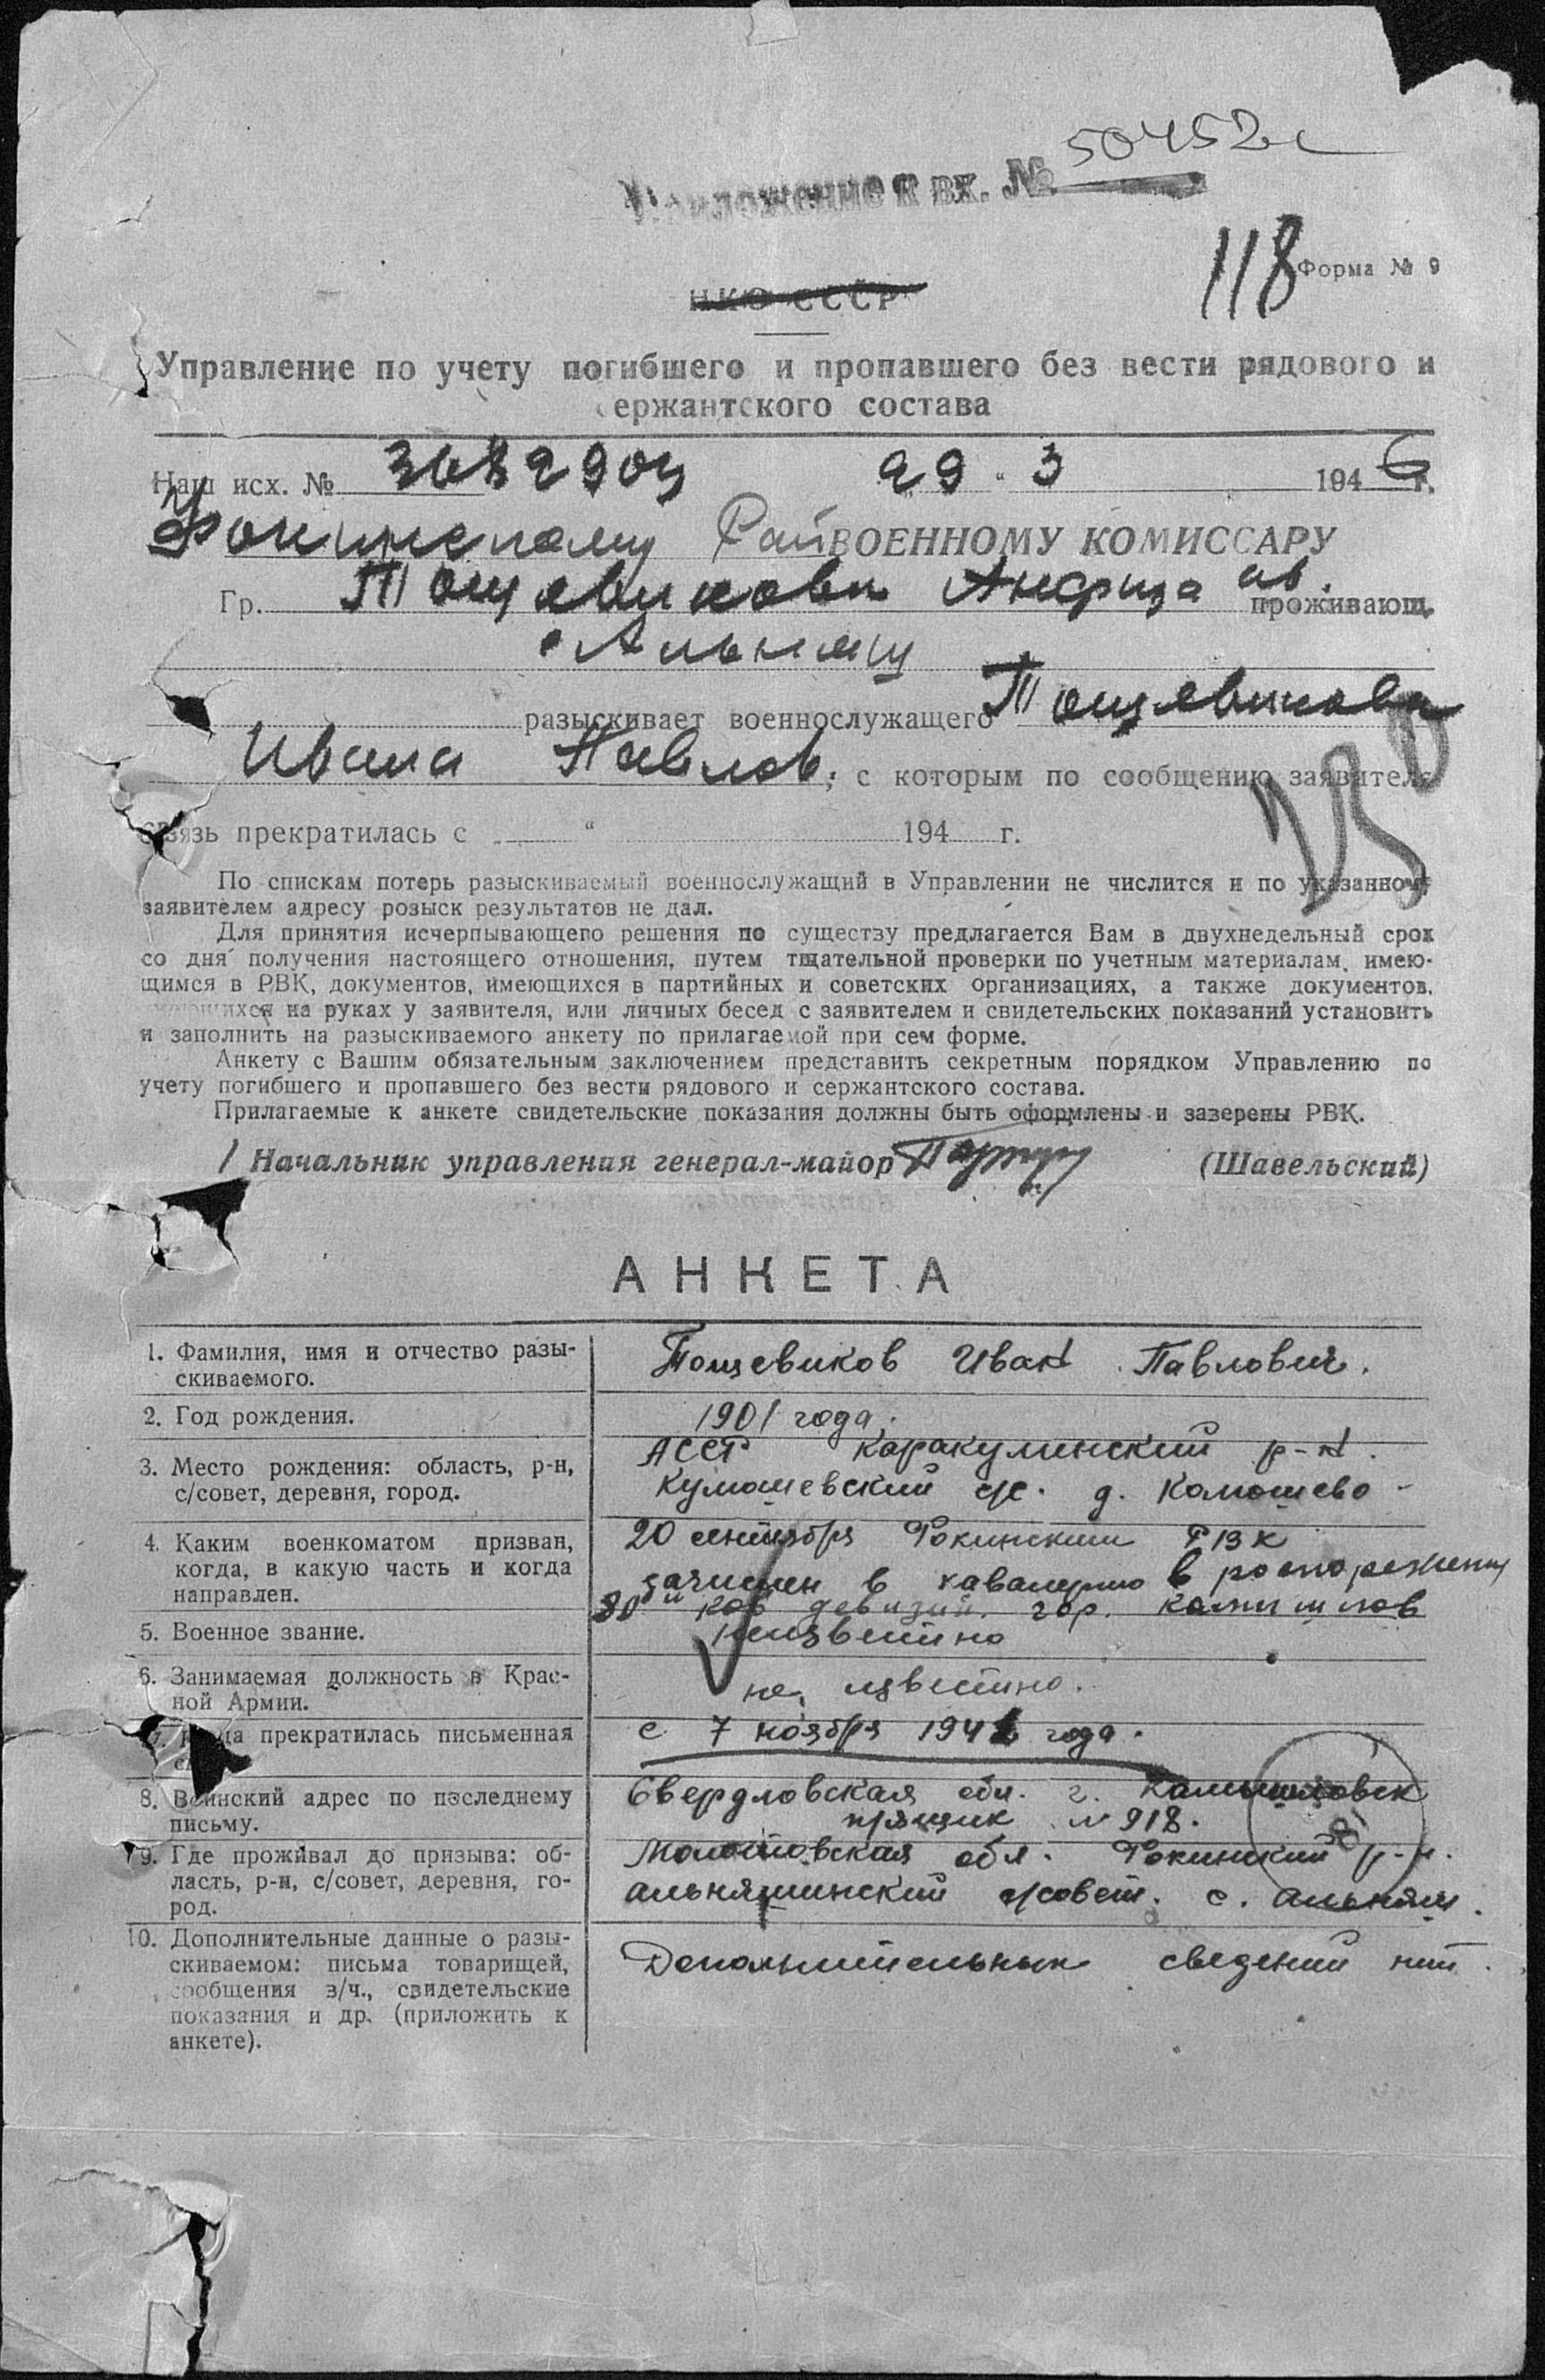 50452с
Приложение к вх. №
118 Форма № 9
НКО СССР
Управление по учету погибшего и пропавшего без вести рядового и
сержантского состава
Наш исх. № 29 " 3 1946 г.
Фокинскому Рай ВОЕННОМУ КОМИССАРУ
Гр. Тощевикова ив. проживающ.
Альняш
разыскивает военнослужащего Тощевикова
Ивана Павлов. ; с которым по сообщению заявителя
связь прекратилась с " 194 г.
По спискам потерь разыскиваемый военнослужащий в Управлении не числится и по указанному
заявителем адресу розыск результатов не дал.
Для принятия исчерпывающего решения по существу предлагается Вам в двухнедельный срок
со дня получения настоящего отношения, путем тщательной проверки по учетным материалам, имею-
щимся в РВК, документов, имеющихся в партийных и советских организациях, а также документов,
имеющихся на руках у заявителя, или личных бесед с заявителем и свидетельских показаний установить
и заполнить на разыскиваемого анкету по прилагаемой при сем форме.
Анкету с Вашим обязательным заключением представить секретным порядком Управлению по
учету погибшего и пропавшего без вести рядового и сержантского состава.
Прилагаемые к анкете свидетельские показания должны быть оформлены и заверены РВК.
Начальник управления генерал-майор (Шавельский)
АНКЕТА
1. Фамилия, имя и отчество разы-
скиваемого.
Тощевиков Иван Павлович.
2. Год рождения.
1901 года.
3. Место рождения: область, р-н,
с/совет, деревня, город.
АССР Каракулинский р-н.
Кумошевский с/с. д. Комошево
4. Каким военкоматом призван,
когда, в какую часть и когда
направлен.
20 сентября Фокинским РВК
зачислен в кавалерию в роспорежении
80й кав девизии. гор. Камышлов
5. Военное звание.
неизвестно
6. Занимаемая должность в Крас-
ной Армии.
не известно.
7. Когда прекратилась письменная
с 7 ноября 1941 года.
8. Воинский адрес по последнему
письму.
Свердловская обл. г. Камышловск
п/ящик № 918.
9. Где проживал до призыва: об-
ласть, р-н, с/совет, деревня, го-
род.
Молотовская обл. Фокинский р-н.
альняшинский с/совет. с. альняш.
10. Дополнительные данные о разы-
скиваемом: письма товарищей,
сообщения в/ч., свидетельские
показания и др. (приложить к
анкете).
Дополнительных сведений нит.